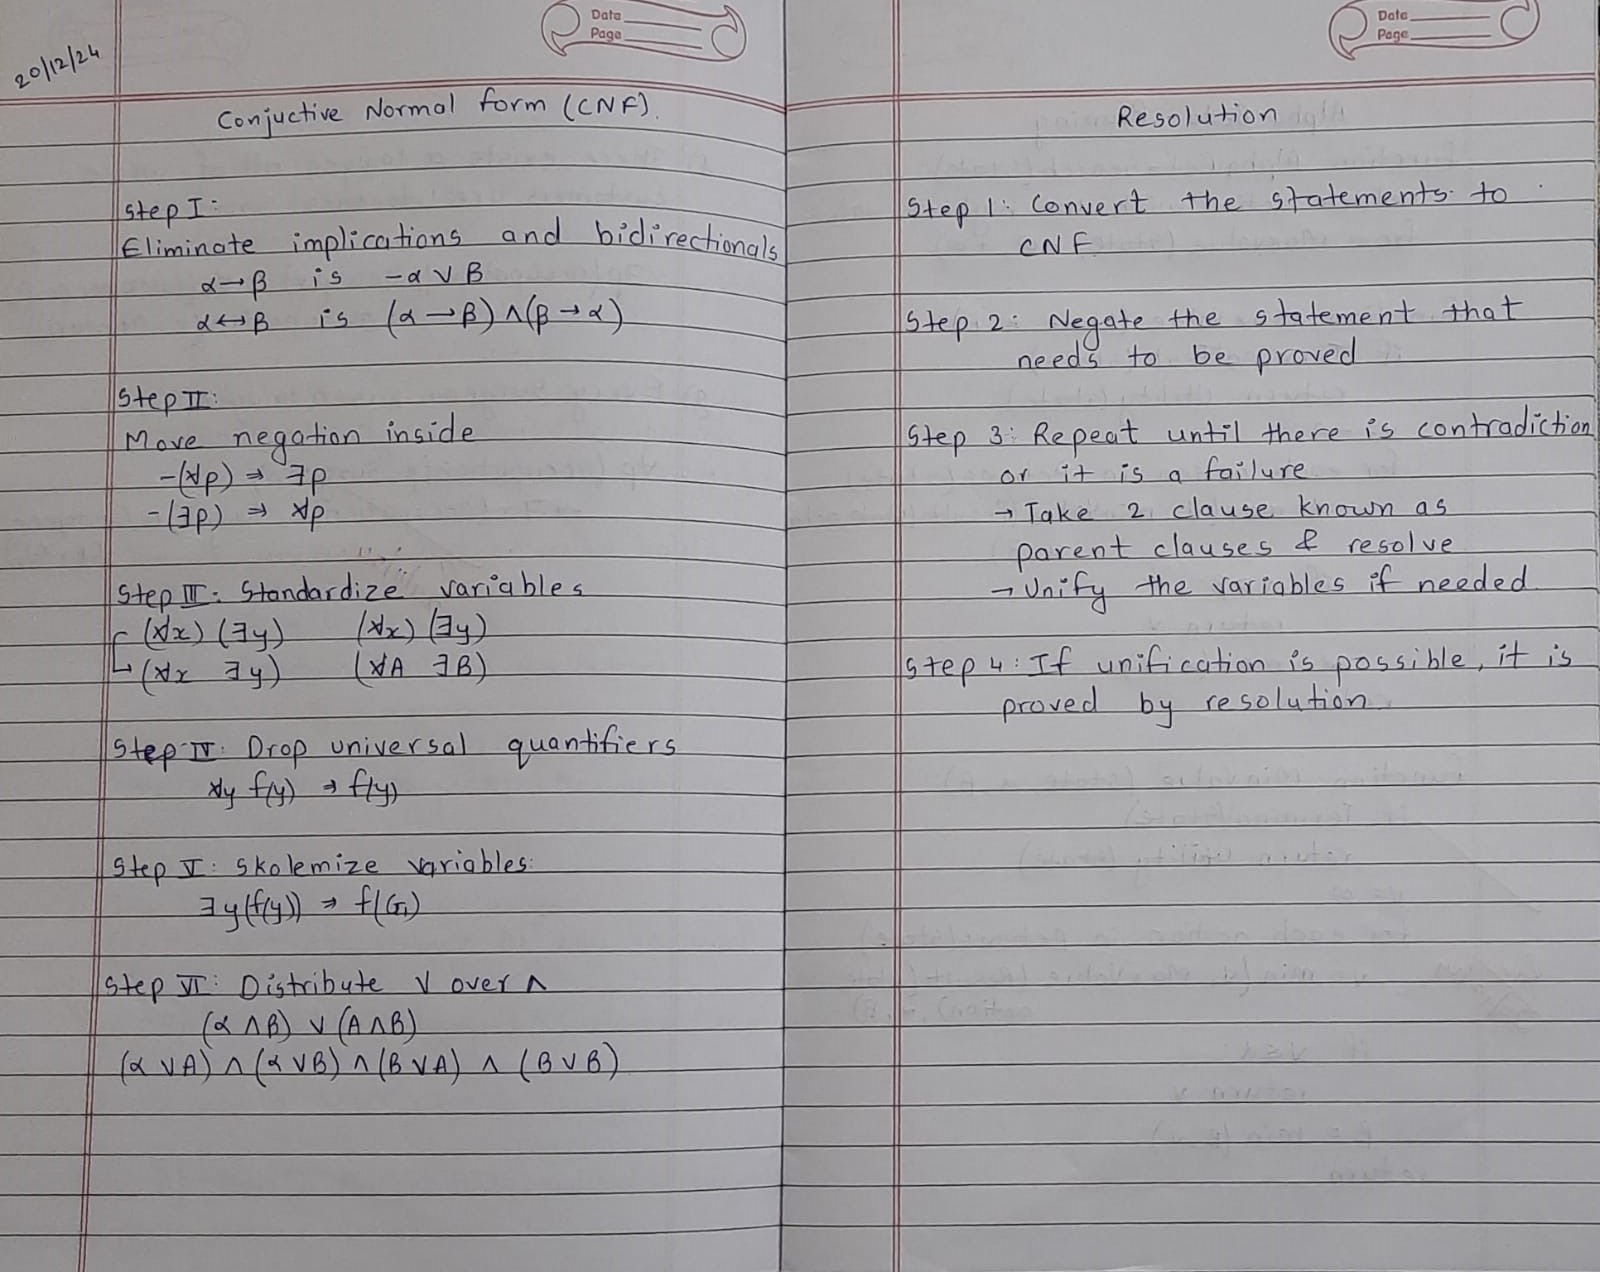 20/12/24
Date
Page
Conjuctive Normal form (CNF).
Step I:
Eliminate implications and bidirectionals
α→β is -α ∨ β
α↔β is (α→β) ∧ (β→α)
Step II:
Move negation inside
-(∀p) ⇒ ∃p
-(∃p) ⇒ ∀p
Step III: Standardize variables
(∀x) (∃y) (∀x) (∃y)
(∀x ∃y) (∀A ∃B)
Step IV: Drop universal quantifiers
∀y f(y) → f(y)
Step V: Skolemize variables:
∃y(f(y)) → f(G1)
Step VI: Distribute ∨ over ∧
(α ∧ β) ∨ (A ∧ B)
(α ∨ A) ∧ (α ∨ B) ∧ (β ∨ A) ∧ (β ∨ B)
Date
Page
Resolution
Step 1: Convert the statements to
CNF
Step 2: Negate the statement that
needs to be proved
Step 3: Repeat until there is contradiction
or it is a failure
→ Take 2 clause known as
parent clauses & resolve
→ Unify the variables if needed
Step 4: If unification is possible, it is
proved by resolution